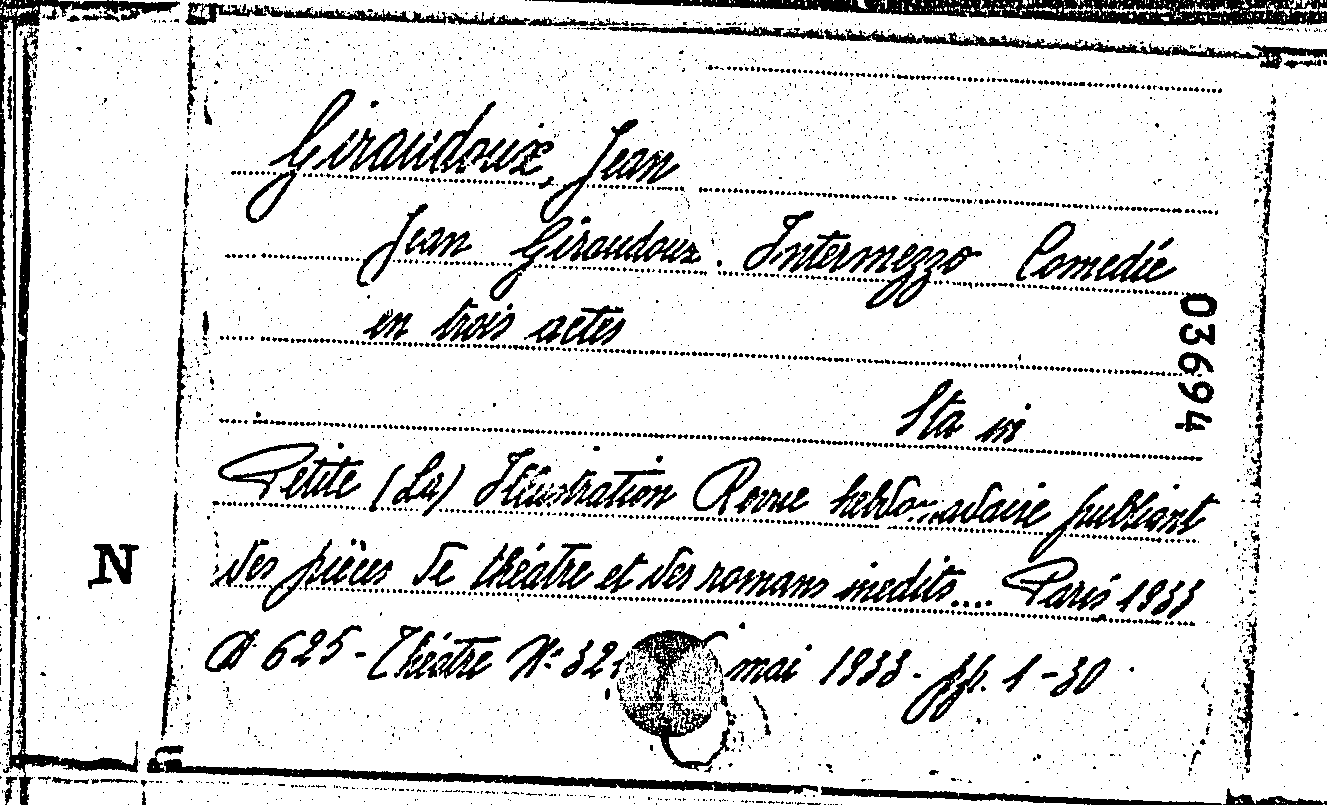 Giraudoux, Jean
Jean Giraudoux. Intermezzo Comedie
en trois actes
03694
Sta in
Petite (La) Illustration Revue hebdomadaire publiant
des pièces de théatre et des romans inedits... Paris 1933
N
N° 625 - Théatre N° 32 mai 1933 - ff. 1-30